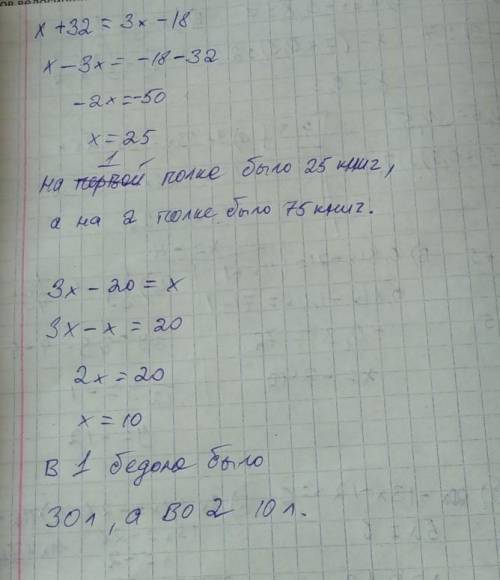 x + 32 = 3x - 18
x - 3x = -18 - 32
-2x = -50
x = 25
1
на первой полке было 25 книг,
а на 2 полке было 75 книг.
3x - 20 = x
3x - x = 20
2x = 20
x = 10
в 1 бедоне было
30 л, а во 2 10 л.